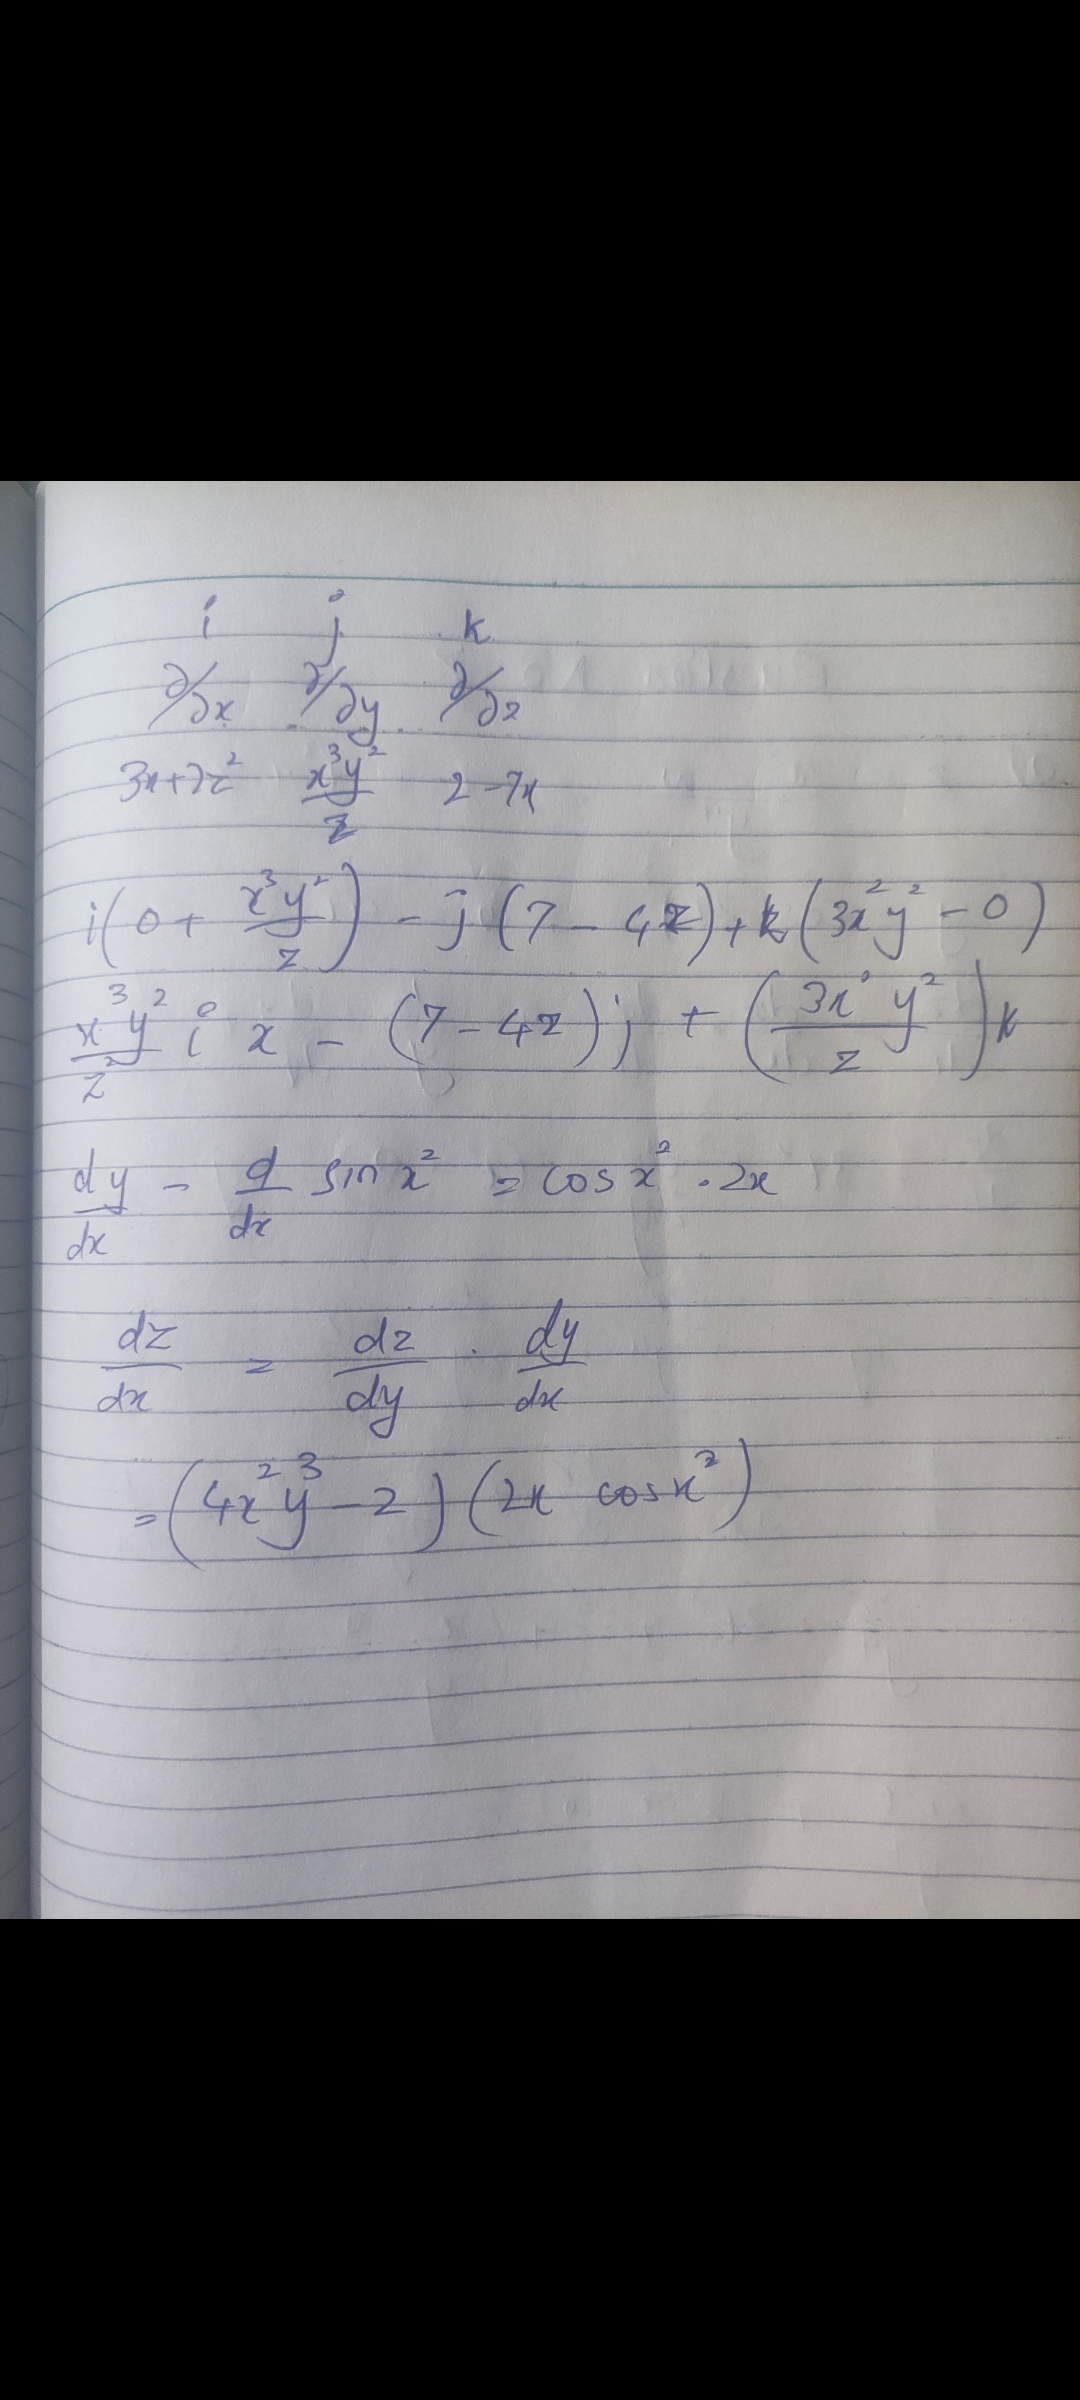 i j k
∂/∂x ∂/∂y ∂/∂z
3x+2z² x³y²/z 2-7x
i(0 + x³y²/z) - j(7 - 4z) + k(3x²y² - 0)
x³y²/z² i x - (7-4z)j + (3x² y²/z)k
dy/dx - d/dx sin x² = cos x² . 2x
dz/dx = dz/dy . dy/dx
= (4x²y³ - 2)(2x cosx²)